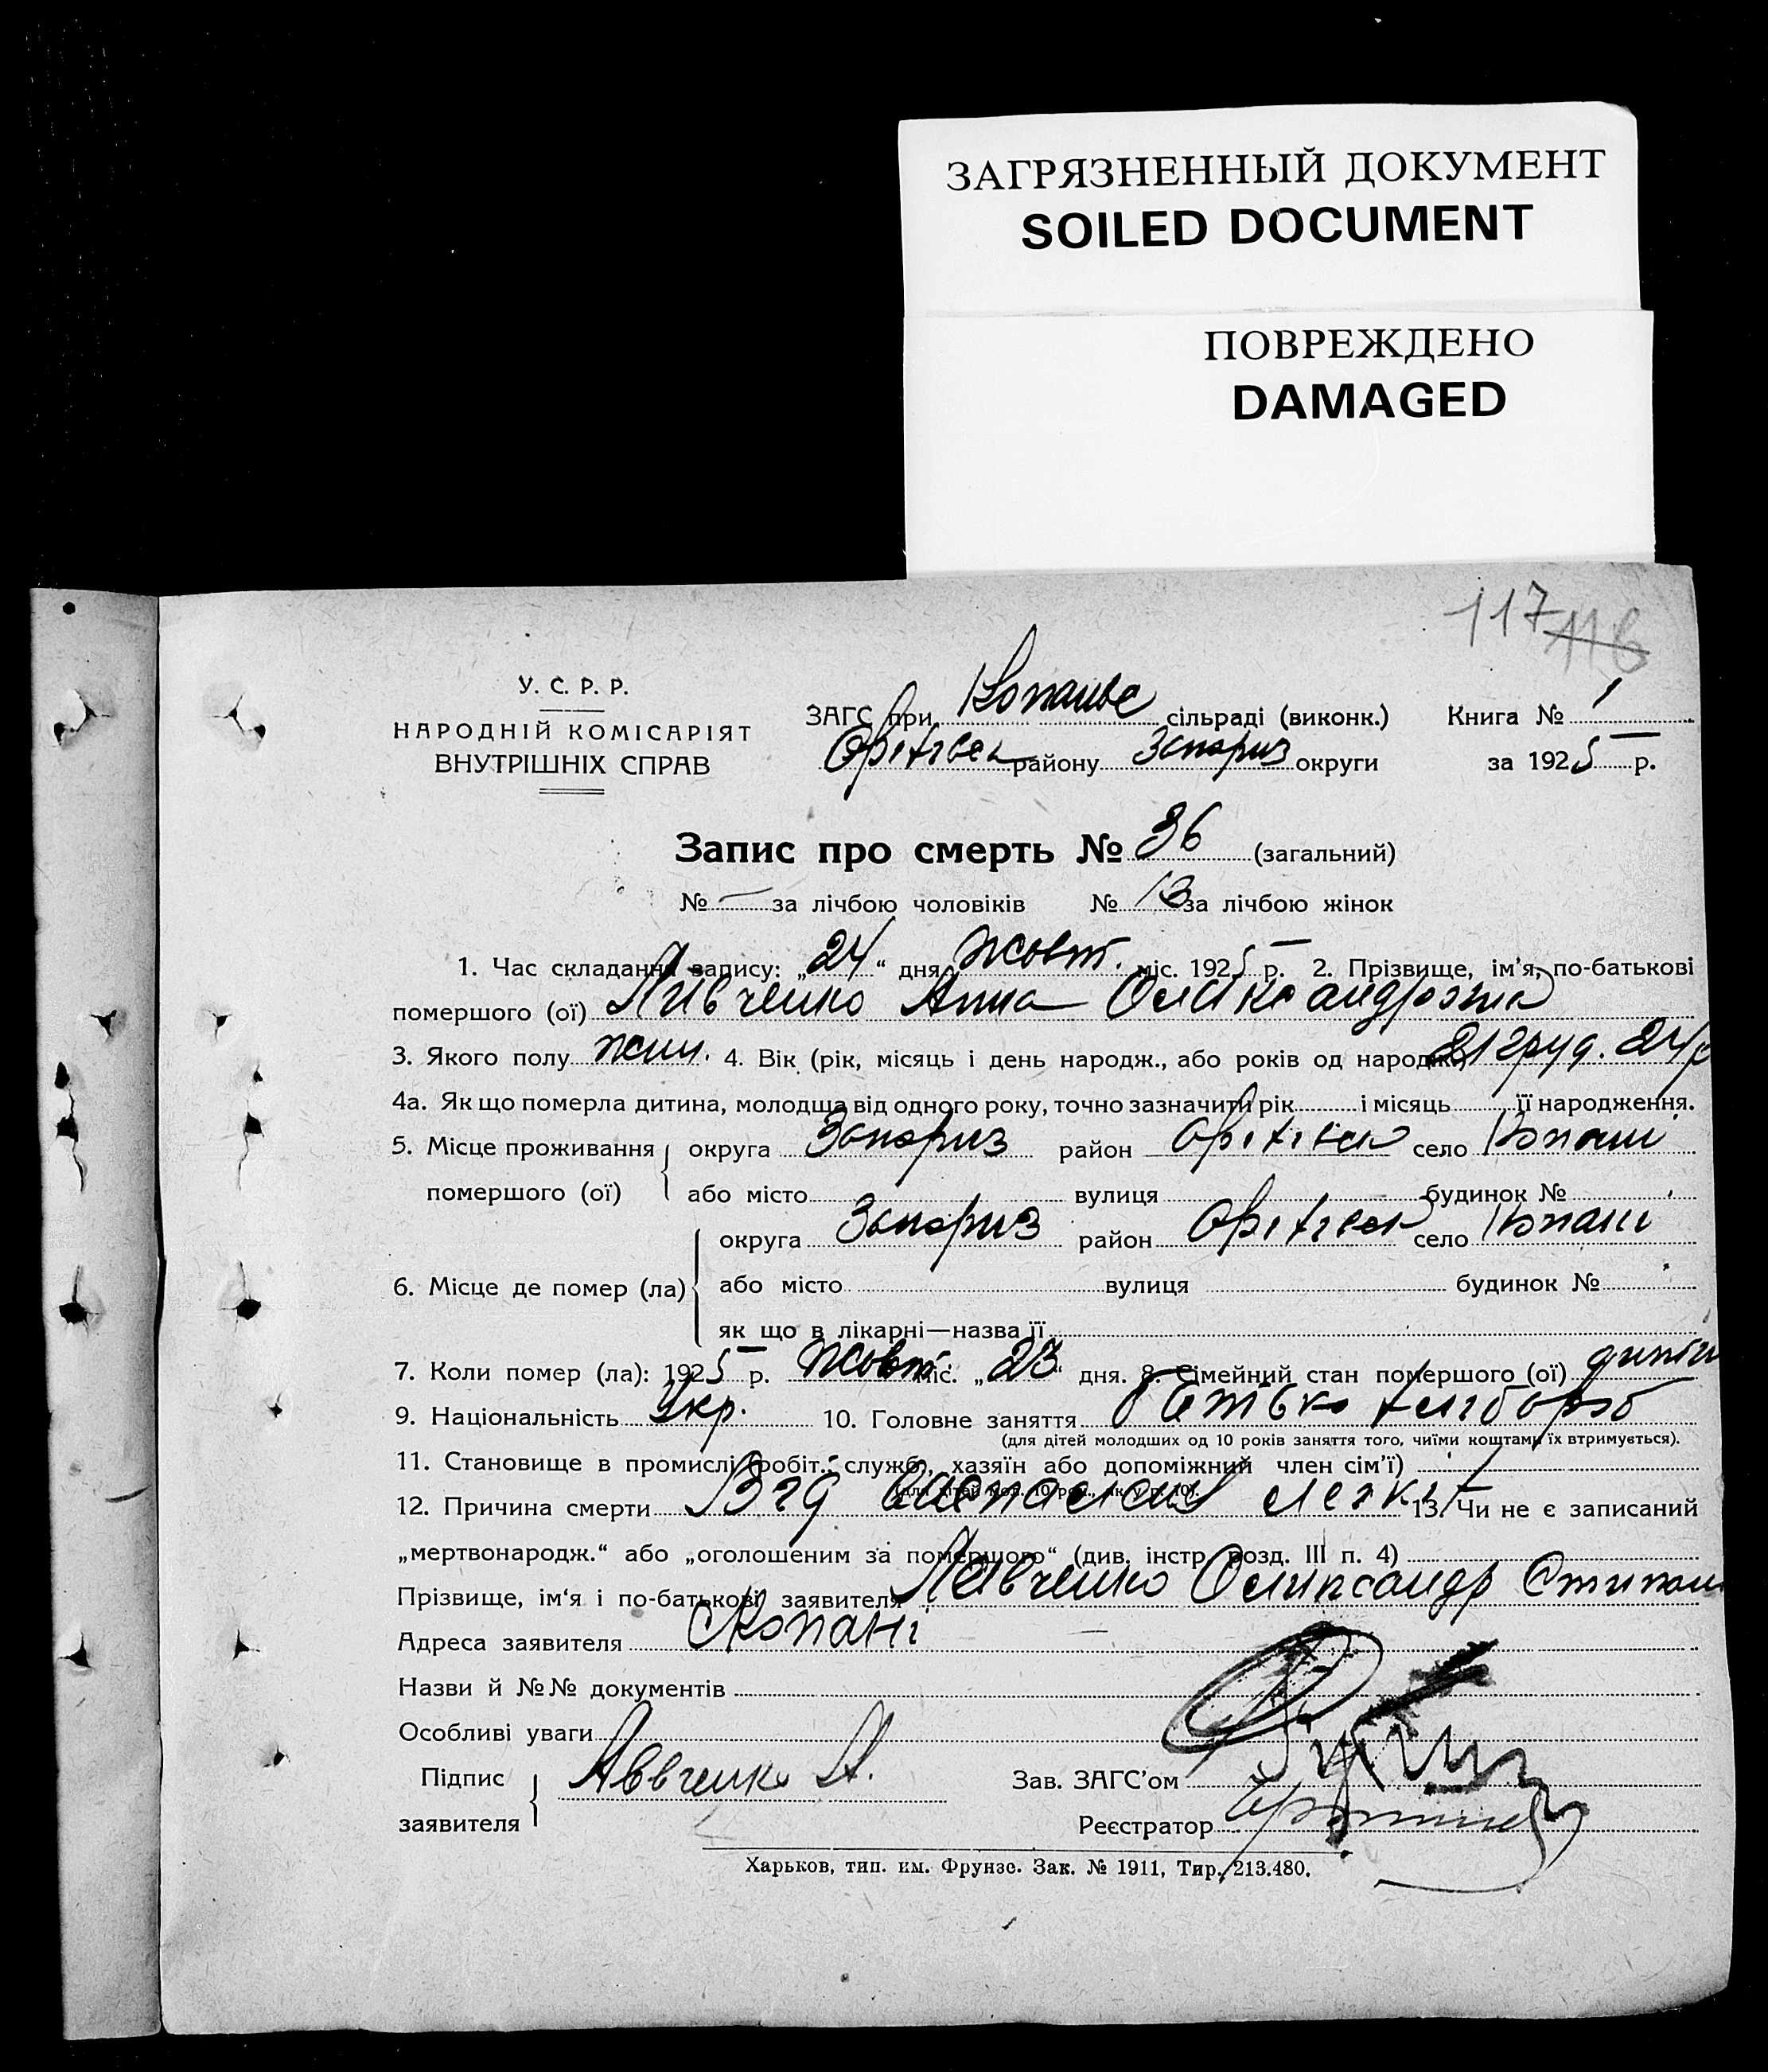 ЗАГРЯЗНЕННЫЙ ДОКУМЕНТ
SOILED DOCUMENT
ПОВРЕЖДЕНО
DAMAGED
117 116
У. С. Р. Р.
НАРОДНІЙ КОМІСАРІЯТ
ВНУТРІШНІХ СПРАВ
ЗАГС при сільраді (виконк.) Книга № 1
району Запориз округи за 1925 р.
Запис про смерть № 36 (загальний)
№ — за лічбою чоловіків № 13 за лічбою жінок
1. Час складання запису: „24“ дня Жовт. міс. 1925 р. 2. Прізвище, ім'я, по-батькові
помершого (ої) Анна
3. Якого полу жин. 4. Вік (рік, місяць і день народж., або років од народж.) 21 груд. 24 р
4а. Як що померла дитина, молодша від одного року, точно зазначити рік і місяць її народження.
5. Місце проживання округа Запориз район село Копані
помершого (ої) або місто вулиця будинок №
округа Запориз район село Копані
6. Місце де помер (ла)
або місто вулиця будинок №
як що в лікарні—назва її
7. Коли помер (ла): 1925 р. Жовт. міс. „23“ дня. 8. Сімейний стан помершого (ої)
9. Національність Укр. 10. Головне заняття Батько хлібороб
(для дітей молодших од 10 років заняття того, чиїми коштами їх втримується).
11. Становище в промислі (робіт., служб., хазяїн або допоміжний член сім'ї)
(для дітей мол. 10 рок., як у р. 10).
12. Причина смерти Від легк 13. Чи не є записаний
„мертвонародж.“ або „оголошеним за помершого“ (див. інстр. розд. III п. 4)
Прізвище, ім'я і по-батькові заявителя
Адреса заявителя С Копані
Назви й №№ документів
Особливі уваги
Підпис
заявителя
Зав. ЗАГС'ом
Реєстратор
Харьков, тип. им. Фрунзе. Зак. № 1911, Тир. 213.480.